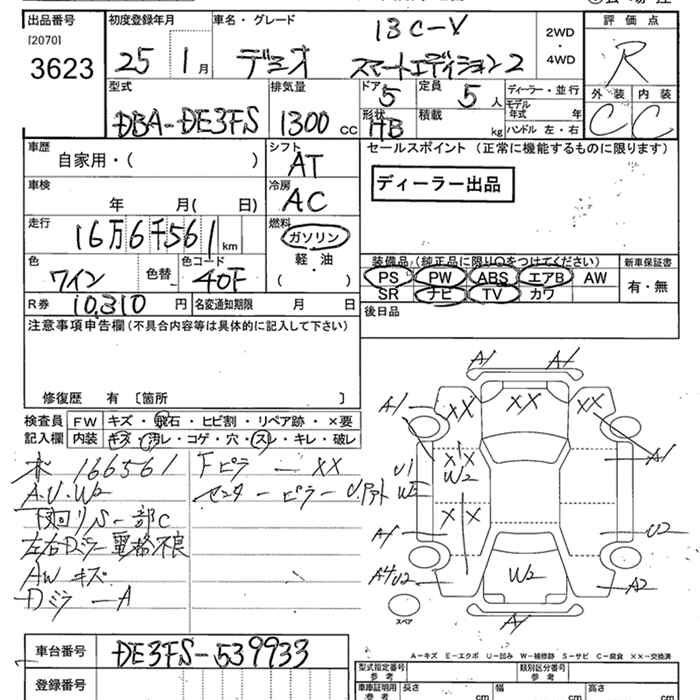 出品番号 初度登録年月 車名・グレード 13C-V 2WD・4WD 評価点
[2070]
3623 25 1月 デミオ スマートエディション2 R
型式 排気量 ドア 定員 ディーラー・並行 外装 内装
DBA-DE3FS 1300cc 5 5人 モデル年式 年 C C
形状 HB 積載 kg ハンドル 左・右
車歴 シフト セールスポイント (正常に機能するものに限ります)
自家用・( ) AT
ディーラー出品
車検 冷房
年 月( 日) AC
走行 燃料
16万6千561km ガソリン
軽・油
( )
装備品(純正品に限り○をつけてください) 新車保証書
色 色替 色コード PS PW ABS エアB AW 有・無
ワイン 40F SR ナビ TV カワ
R券 10,310円 名変通知期限 月 日 後日品
注意事項申告欄(不具合内容等は具体的に記入して下さい)
修復歴 有 〔箇所 〕
検査員記入欄 FW キズ・飛石・ヒビ割・リペア跡・×要
内装 キズ・汚レ・コゲ・穴・スレ・キレ・破レ
166561 Fピラー XX
A.U.W2 センターピラー U
下回りS一部C
左右Dミラー電格不良
AWキズ
A
A1 A1
XX XX XX
A1 A1
X1X
W2
U1
XX
A1 U2
A4U2 W2 A2
A1
スペア
A-キズ E-エクボ U-凹み W-補修跡 S-サビ C-腐食 ××-交換済
車台番号 DE3FS-539933
型式指定番号 参考 類別区分番号 参考
登録番号 車庫証明用 参考 長さ cm 幅 cm 高さ cm